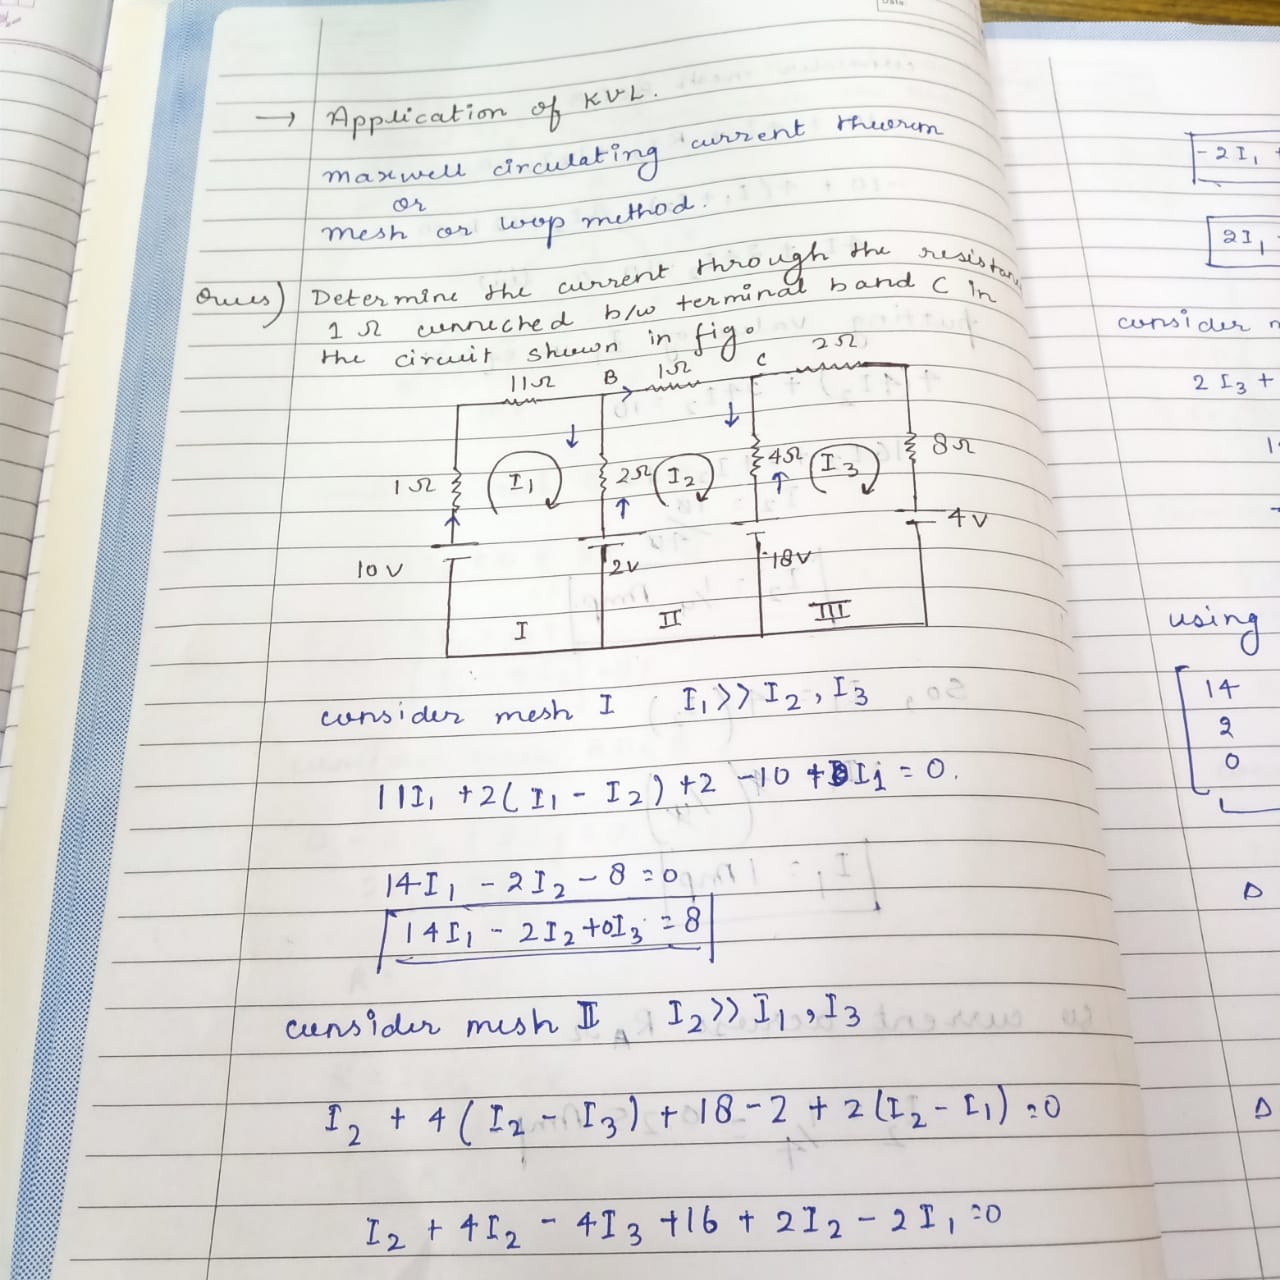 → Application of KVL.
maxwell circulating current theorem
or
mesh or loop method.
Ques) Determine the current through the resistan
1 Ω connected b/w terminal b and C in
the circuit shown in fig.
11Ω B 1Ω C 2Ω
1Ω I₁ 2Ω I₂ 4Ω I₃ 8Ω
10V 2V 18V 4V
I II III
consider mesh I I₁ >> I₂, I₃
11I₁ + 2(I₁ - I₂) + 2 - 10 + I₁ = 0.
14I₁ - 2I₂ - 8 = 0
14I₁ - 2I₂ + 0I₃ = 8
consider mesh II I₂ >> I₁, I₃
I₂ + 4(I₂ - I₃) + 18 - 2 + 2(I₂ - I₁) = 0
I₂ + 4I₂ - 4I₃ + 16 + 2I₂ - 2I₁ = 0
-2I₁
2I₁
consider
2I₃ +
using
14
2
0
Δ
Δ